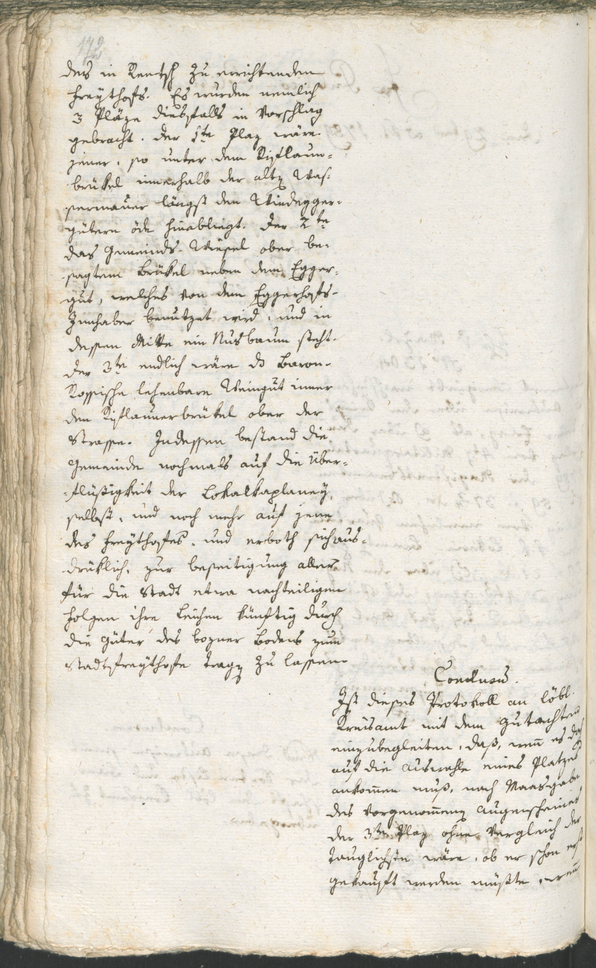 des in Rentsch zu errichtenden
Freythofs. Es wurden nemlich
3 Pläze diesfalls in Vorschlag
gebracht. der 1te Plaz wäre
jener, so unter dem Kistlaun-
brükel innerhalb der alten Was-
sermauer längst den Windegger-
gütern öde hinabliegt. Der 2te
das Gemeinds-Wiesel ober be-
sagtem Brükel neben dem Egger-
gut, welches von dem Eggerhofs-
Innhaber benutzet wird, und in
dessen Mitte ein Nusbaum steht.
Der 3te endlich wäre das Baron-
Rossische lehenbare Weingut inner
dem Kistlaunerbrükel ober der
Strasse. Indessen bestand die
Gemeinde nochmals auf die Über-
flüßigkeit der Lokalkaplaney
selbst, und noch mehr auf jene
des Freythofes, und erboth sich aus-
drüklich, zur Beseitigung aller
für die Stadt etwa nachteiligen
Folgen ihre Leichen künftig durch
die Güter des bozner Bodens zum
Stadtfreythofe tragen zu lassen
Conclusum.
Ist dieses Protokoll an löbl.
Kreisamt mit dem Gutachten
einzubegleiten, daß, wenn es doch
auf die Auswahle eines Plazes
ankommen muß, nach Maasgabe
des vorgenommenen Augenscheines
der 3te Plaz ohne Vergleich der
tauglichste wäre, ob er schon erst
gekauft werden müßte, wenn